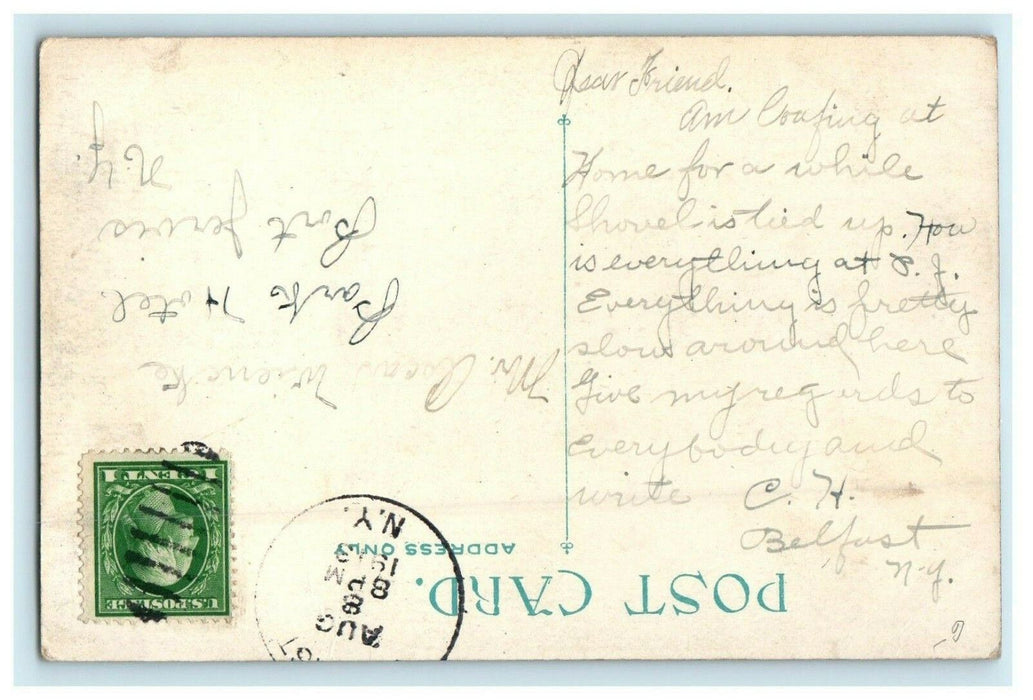 Dear Friend.
Am Loafing at
Home for a while
Shovel is tied up. How
is everything at P. J.
Everything is pretty
slow around here
Give my regards to
everybody and
write C. H.
Belfast
N.Y.
POST CARD.
ADDRESS ONLY
Mr. Oscar
Park Hotel
Port Jervis
N.Y.
U.S. POSTAGE
1 CENT 1
AUG
8
N.Y.